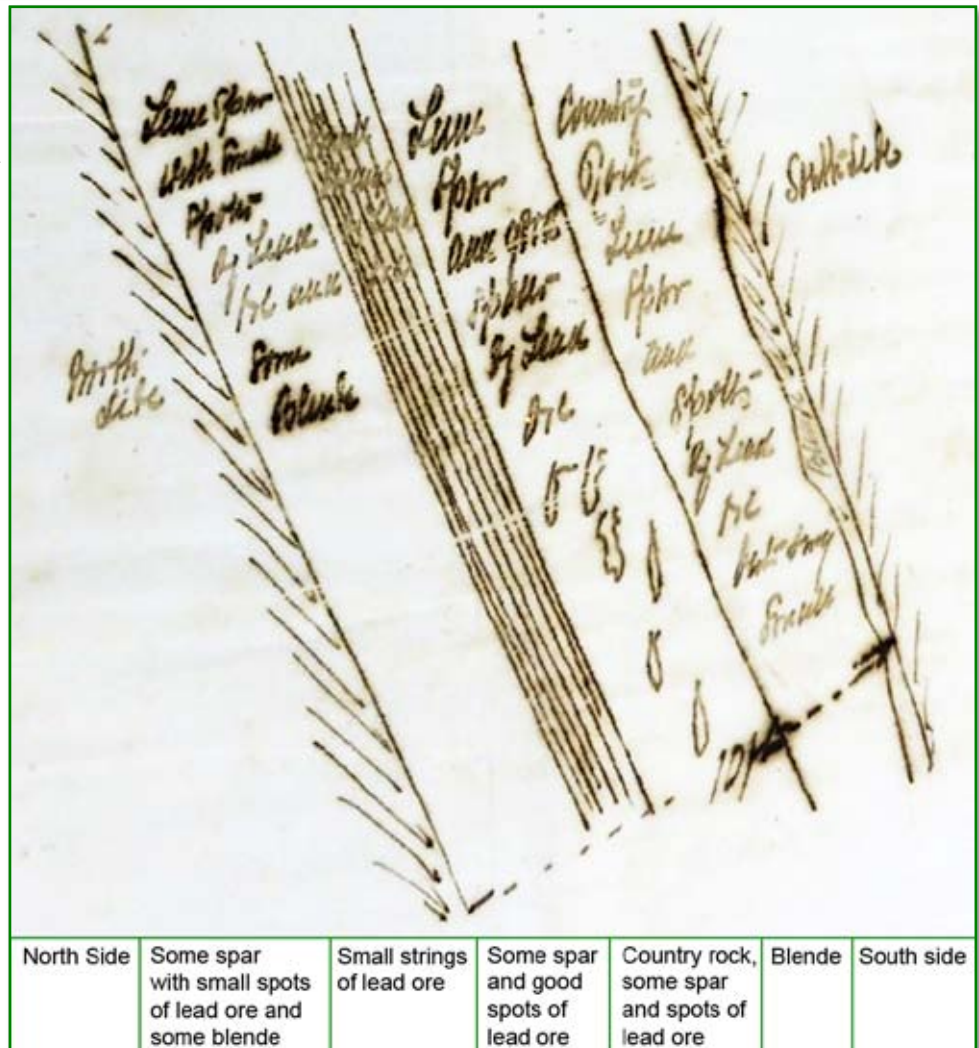 North
side
Spar
with Small
Spots
of Lead
ore and
Some
Blende
Small
Strings
Spar
and good
Spots
of Lead
ore
Country
Spar
and
Spots
of Lead
ore
but very
Small
South Side
North Side
Some spar
with small spots
of lead ore and
some blende
Small strings
of lead ore
Some spar
and good
spots of
lead ore
Country rock,
some spar
and spots of
lead ore
Blende
South side